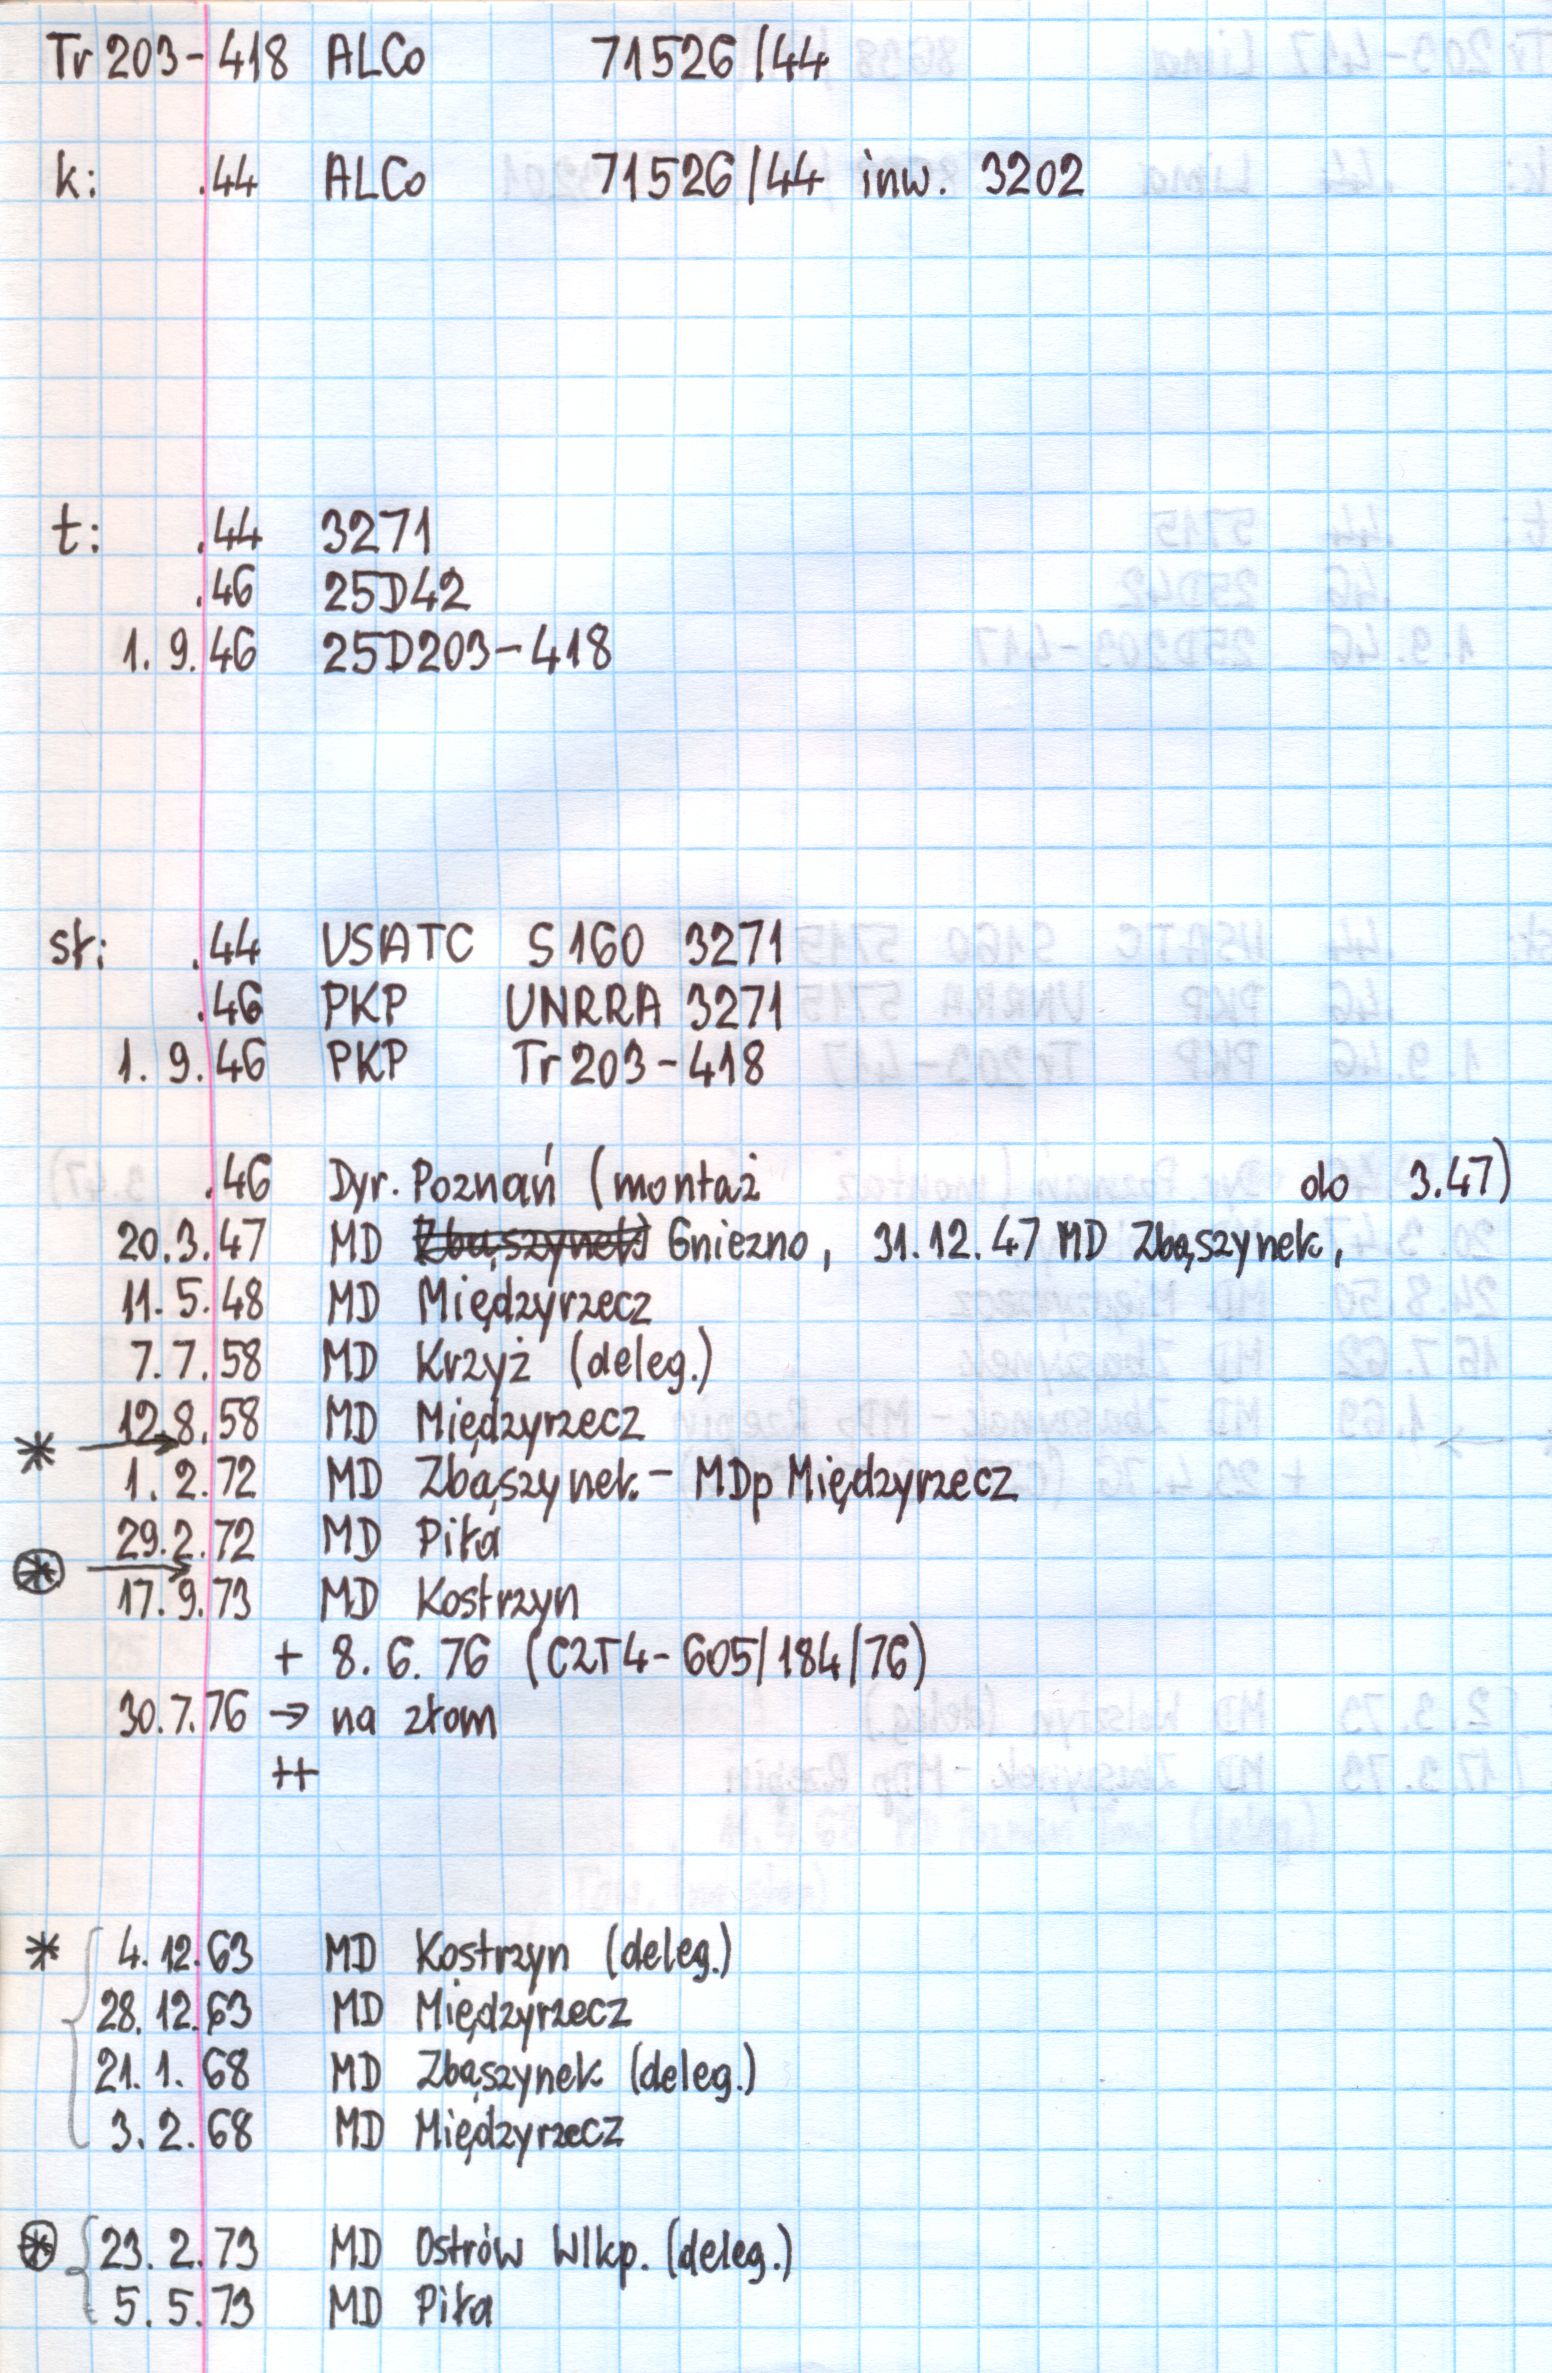 Tr 203-418 ALCo 71526/44
k: .44 ALCo 71526/44 inw. 3202
t: .44 3271
.46 25D42
1.9.46 25D203-418
sł: .44 USATC S160 3271
.46 PKP UNRRA 3271
1.9.46 PKP Tr 203-418
.46 Dyr. Poznań (montaż do 3.47)
20.3.47 MD Zbąszynek Gniezno, 31.12.47 MD Zbąszynek,
11.5.48 MD Międzyrzecz
7.7.58 MD Krzyż (deleg.)
12.8.58 MD Międzyrzecz
* →
1.2.72 MD Zbąszynek - MDp Międzyrzecz
29.2.72 MD Piła
⊛ →
17.9.73 MD Kostrzyn
+ 8.6.76 (C2T4-605/184/76)
30.7.76 → na złom
++
* { 4.12.63 MD Kostrzyn (deleg.)
28.12.63 MD Międzyrzecz
21.1.68 MD Zbąszynek (deleg.)
3.2.68 MD Międzyrzecz
⊛ { 23.2.73 MD Ostrów Wlkp. (deleg.)
5.5.73 MD Piła